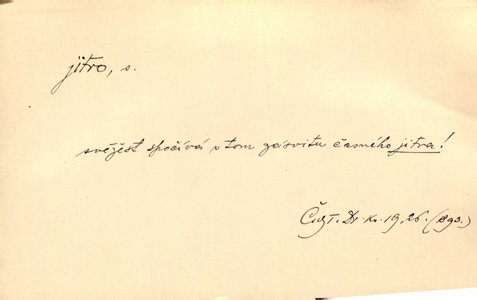 jitro, s.
svěžest spočívá v tom zásvitu časného jitra!
Čch. Dr. Kr. 19, 26. (1893.)